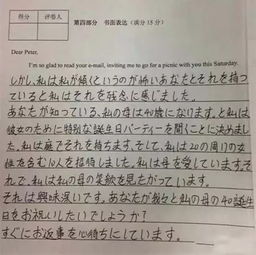 得分 评卷人
第四部分 书面表达（满分 15 分）
Dear Peter,
I'm so glad to read your e-mail, inviting me to go for a picnic with you this Saturday.
しかし、私は私が傾くというのが怖いあなたとそれを持つ
ていると私はそれを残念に感じました。
あなたが知っている、私の母は40歳になります。と私は
彼女のために特別な誕生日パーティーを開くことに決めまし
た。私は庭でそれを持ちます。そして、私は20の周りの女
性を含む10人を招待しました。私は母を愛しています。そ
れで、私は私の母の笑顔を見たがって います。
それは興味深いです。あなたが我々と私の母の40誕生
日をお祝いしたいでしょうか？
すぐにお返事を心待ちにしています。